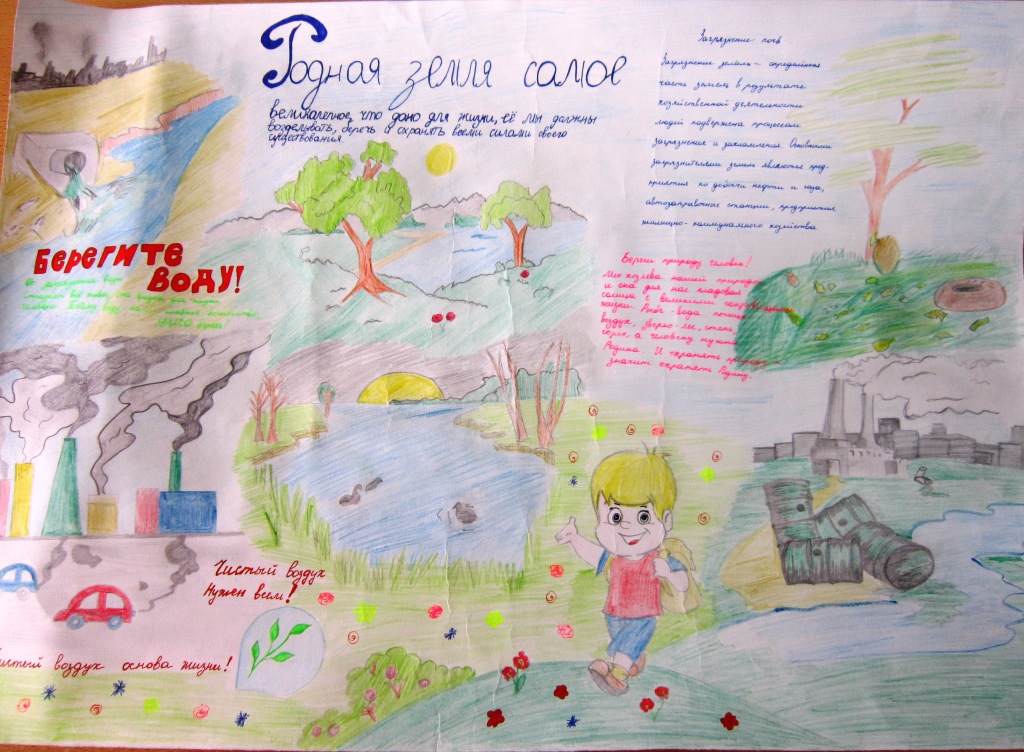 Родная земля самое
великолепное, что дано для жизни, её мы должны
возделывать, беречь и охранять всеми силами своего
существования.
Загрязнение почв
Загрязнение земель – определённая
часть земель в результате
хозяйственной деятельности
людей подвержена процессам
загрязнения и захламления. Основными
загрязнителями земли являются пред-
приятия по добычи нефти и газа,
автозаправочные станции, предприятия
жилищно-коммунального хозяйства
БЕРЕГИТЕ
ВОДУ!
Береги природу человек!
Мы хозяева нашей природы
и она для нас кладовая
солнца с великими
жизни. Рыбе - вода, птице
воздух, зверю - лес, степь,
горы, а человеку нужна
Родина. И охранять природу
значит охранять Родину.
Чистый воздух
Нужен всем!
Чистый воздух основа жизни!